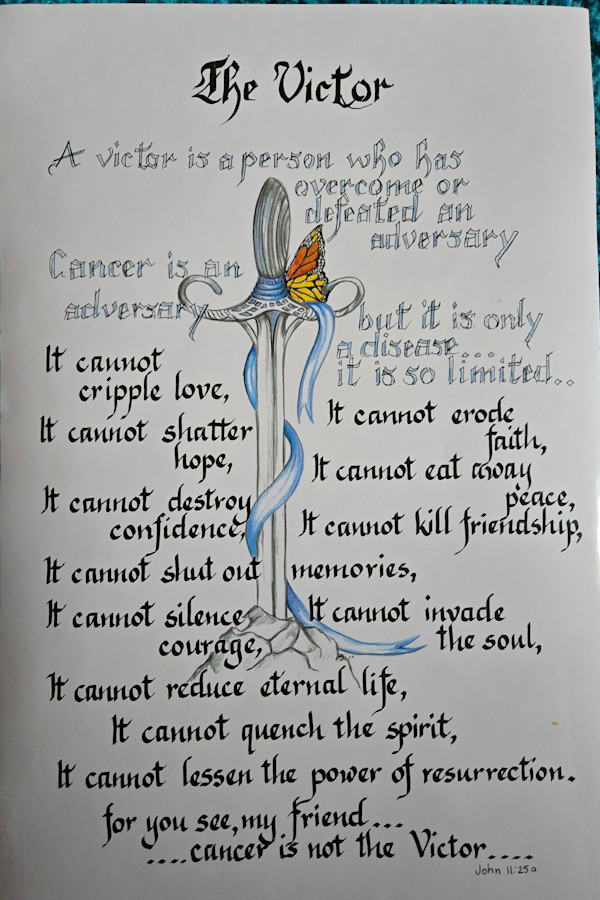 The Victor
A victor is a person who has
overcome or
defeated an
adversary
Cancer is an
adversary
but it is only
a disease....
it is so limited..
It cannot
cripple love,
It cannot shatter
hope,
It cannot destroy
confidence,
It cannot erode
faith,
It cannot eat away
peace,
It cannot kill friendship,
It cannot shut out memories,
It cannot silence
courage,
It cannot invade
the soul,
It cannot reduce eternal life,
It cannot quench the spirit,
It cannot lessen the power of resurrection.
for you see, my friend...
....cancer is not the Victor....
John 11:25a